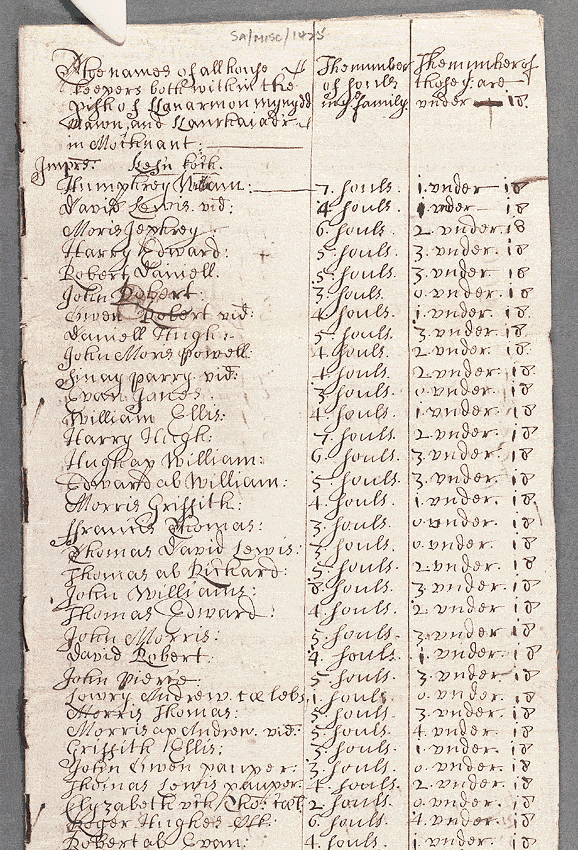 SA/MISC/1425
The names of all house The number The number of
keepers both within the of souls those yt are
pish of Llanarmon mynydd in ye family. under 18.
Mawn, and Llanrhaiadr
in Mochnant:
Imprs.
Humphrey William: 7. souls. 1. under 18
David Lewis. vid: 4 souls. 1. under 18
Moris Jephrey 6. souls. 2. under. 18
Harry Edward: 5. souls. 3. under. 18
Robert Daniell 5. souls. 3. under 18
John Robert: 3. souls. 0. under. 18
Owen Robert vid: 4. souls. 1. under. 18
Daniell Hugh: 5. souls. 3. under. 18
John Moris Powell: 4. souls. 2. under. 18.
parry. vid: 4. souls. 2. under. 18
Evan James 3. souls. 0. under. 18
William Ellis: 4. souls. 1. under. 18
Harry Hugh: 7. souls. 2. under. 18
Hugh ap William: 6. souls. 3. under. 18
Edward ab William: 5. souls. 3. under. 18
Morris Griffith: 4. souls. 1. under. 18
ffrancis Thomas: 3. souls. 0. under. 18
Thomas David Lewis: 3. souls. 0. under. 18
Thomas ab Richard: 5. souls. 2. under. 18
John Williams: 8. souls. 3. under. 18
Thomas Edward: 4. souls. 2. under 18
John Morris: 5. souls. 3. under. 18
David Robert 4. souls. 1. under. 18
John Pierce 5. souls. 3. under. 18
Lowry Andrew. 1. souls 0. under. 18
Morris Thomas: 5. souls. 3. under. 18
Morris ap Andrew. vid: 5. souls. 4. under. 18
Griffith Ellis: 5. souls. 1. under. 18
John Owen pauper: 3. souls. 0. under. 18
Thomas Lewis pauper: 4. souls. 2. under. 18
Elyzabeth vch Tho: 2 souls. 0. under. 18
Roger Hughes 6. souls. 4. under. 18
Robert ab Evan: 4. souls. 1. under 18